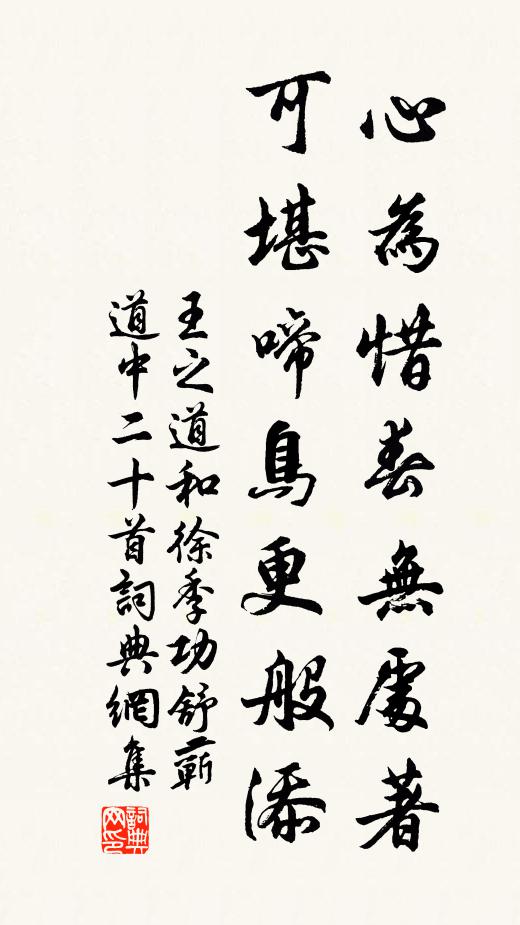 心為惜春無處著
可堪啼鳥更般添
王之道和徐季功舒蘄
道中二十首詞典網集
詞典
网印